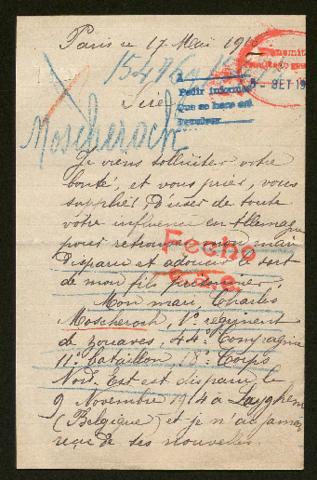 Paris le 17 Mai 191
Transmit
15476
- SET 19
A
Pedir informes
Que se hace así
Sire
Moscheroch
Je viens solliciter votre
bonté, et vous prier, vous
supplier d'user de toute
votre influence en Allemagne
pour retrouver mon mari
Disparu et adoucir le sort
de mon fils prisonnier,
Fecho
Mon mari, Charles
Moscheroch, 1er régiment
de zouaves, 44e Compagnie
11e bataillon, 18e Corps
Nord. Est est disparu le
9 Novembre 1914 à
(Belgique) et je n'ai jamais
reçu de ses nouvelles.